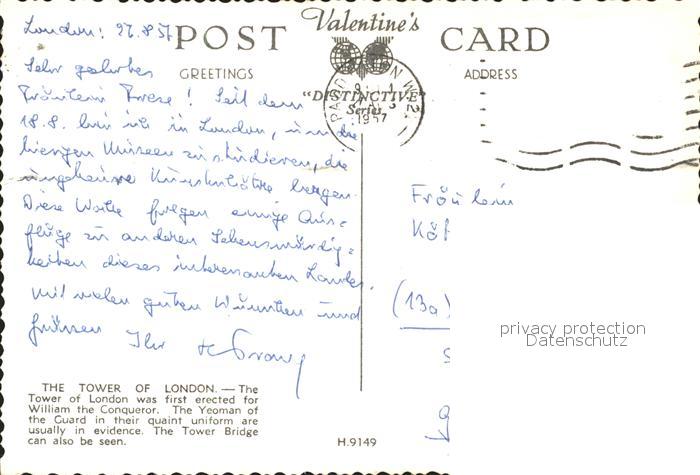 Valentine's
POST CARD
GREETINGS
ADDRESS
"DISTINCTIVE"
Series
PADDINGTON W.2
1957
London: 27.8.57
Sehr geehrtes
Fräulein Frese! Seit dem
18.8. bin ich in London, um die
hiesigen Museen zu studieren, die
ungeheure Kunstschätze bergen.
Diese Woche folgen einige Aus=
flüge zu anderen Sehenswürdig=
keiten dieses interessanten Landes.
Mit vielen guten Wünschen und
Grüssen Ihr
Fräulein
(13a)
privacy protection
Datenschutz
THE TOWER OF LONDON.—The
Tower of London was first erected for
William the Conqueror. The Yeoman of
the Guard in their quaint uniform are
usually in evidence. The Tower Bridge
can also be seen.
H.9149